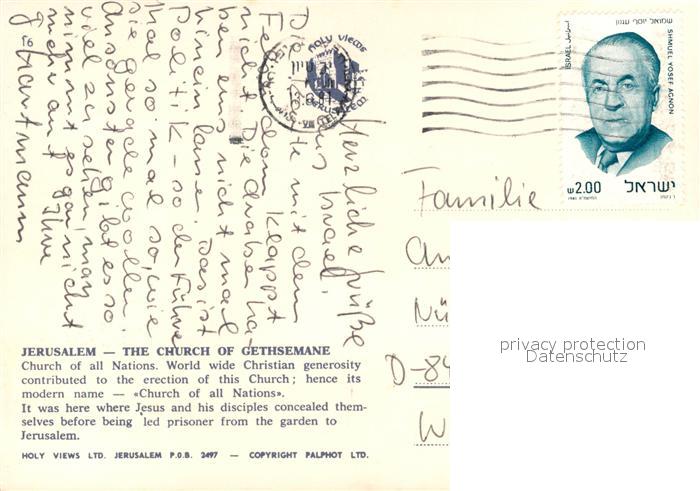 Herzliche Grüße
aus Israel.
Die mit dem
Felsendom klappt
nicht. Die Araber ha-
ben uns nicht mal
hinein lassen. Das ist
Politik - so der Führer
mal so mal so, wie
Sie gerade wollen.
Ansonsten gibt es so
viel zu sehen, man
nimmt es gar nicht
mehr auf. Ihre
Hartmann
HOLY VIEWS
ISRAEL
שמואל יוסף עגנון
SHMUEL YOSEF AGNON
ש2.00
ישראל
Familie
Nü
D-84
W
privacy protection
Datenschutz
JERUSALEM — THE CHURCH OF GETHSEMANE
Church of all Nations. World wide Christian generosity
contributed to the erection of this Church; hence its
modern name — «Church of all Nations».
It was here where Jesus and his disciples concealed them-
selves before being led prisoner from the garden to
Jerusalem.
HOLY VIEWS LTD. JERUSALEM P.O.B. 2497 — COPYRIGHT PALPHOT LTD.